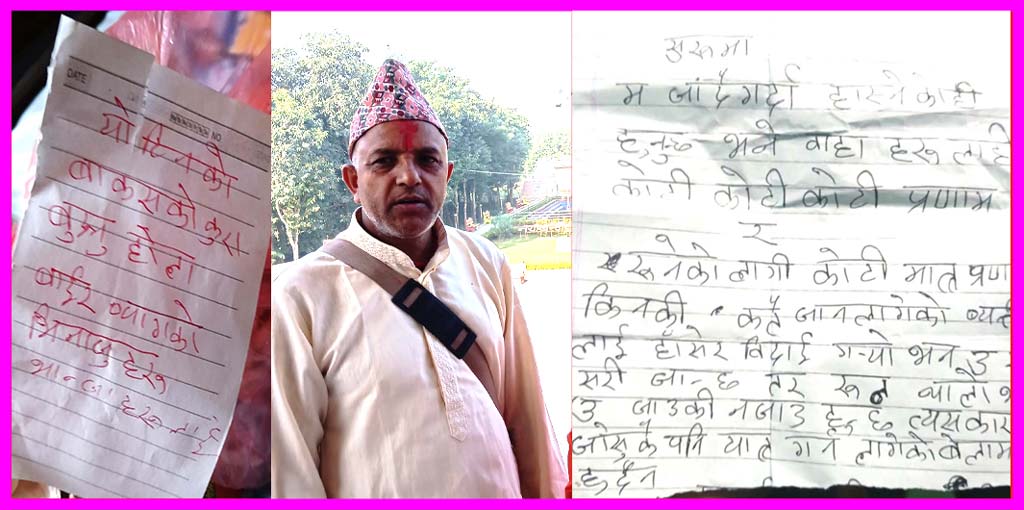 DATE
NO
यो टिनको
बाकसको कुरा
बुझ्नु होला
बाहिर ब्यागको
भान्जा हरू लाई
सुरूमा
म जांदै गर्दा हास्ने कोही
हुनुहुन्छ भने वाहा हरू लाई
कोटी कोटी कोटी प्रणाम
र
रूनेको लागी कोटी मात्र प्रणा
किनकी कतै जान लागेको
लाई हाँसेर विदाई गर्‍यो भने उ
सरी जान्छ तर रूने वालो
उ जाउकी नजाउ हुन्छ त्यस कार
जोसुकै पनि यात्रा गर्न लागेको बेलाम
हुदैन